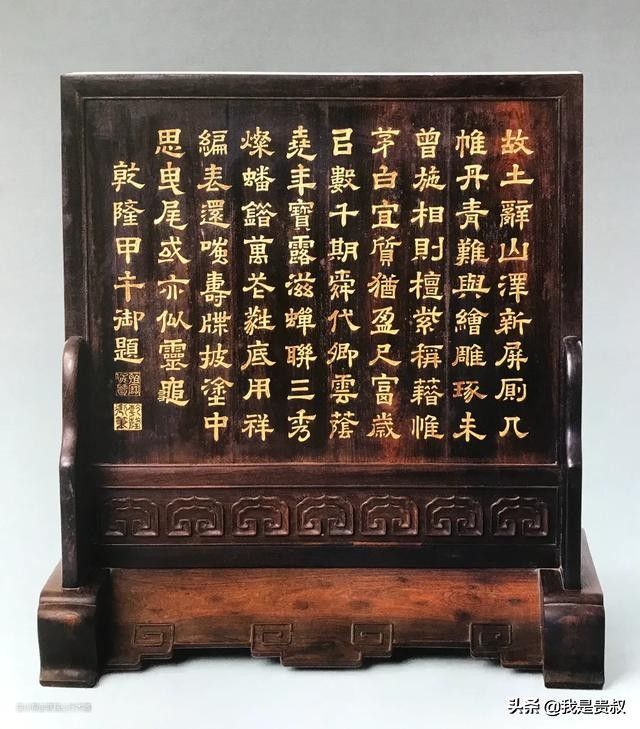 故土辭山澤新屏厠几
帷丹青難與繪雕琢未
曾施相則檀紫稱藉惟
茅白宜質猶盈尺富歲
吕數千期舜代卿雲蔭
堯年寶露滋蟬聯三秀
燦蟠錯萬芝蕤底用祥
編表還嗤壽牒披塗中
思曳尾或亦似靈龜
乾隆甲午御題
头条 @我是贵叔